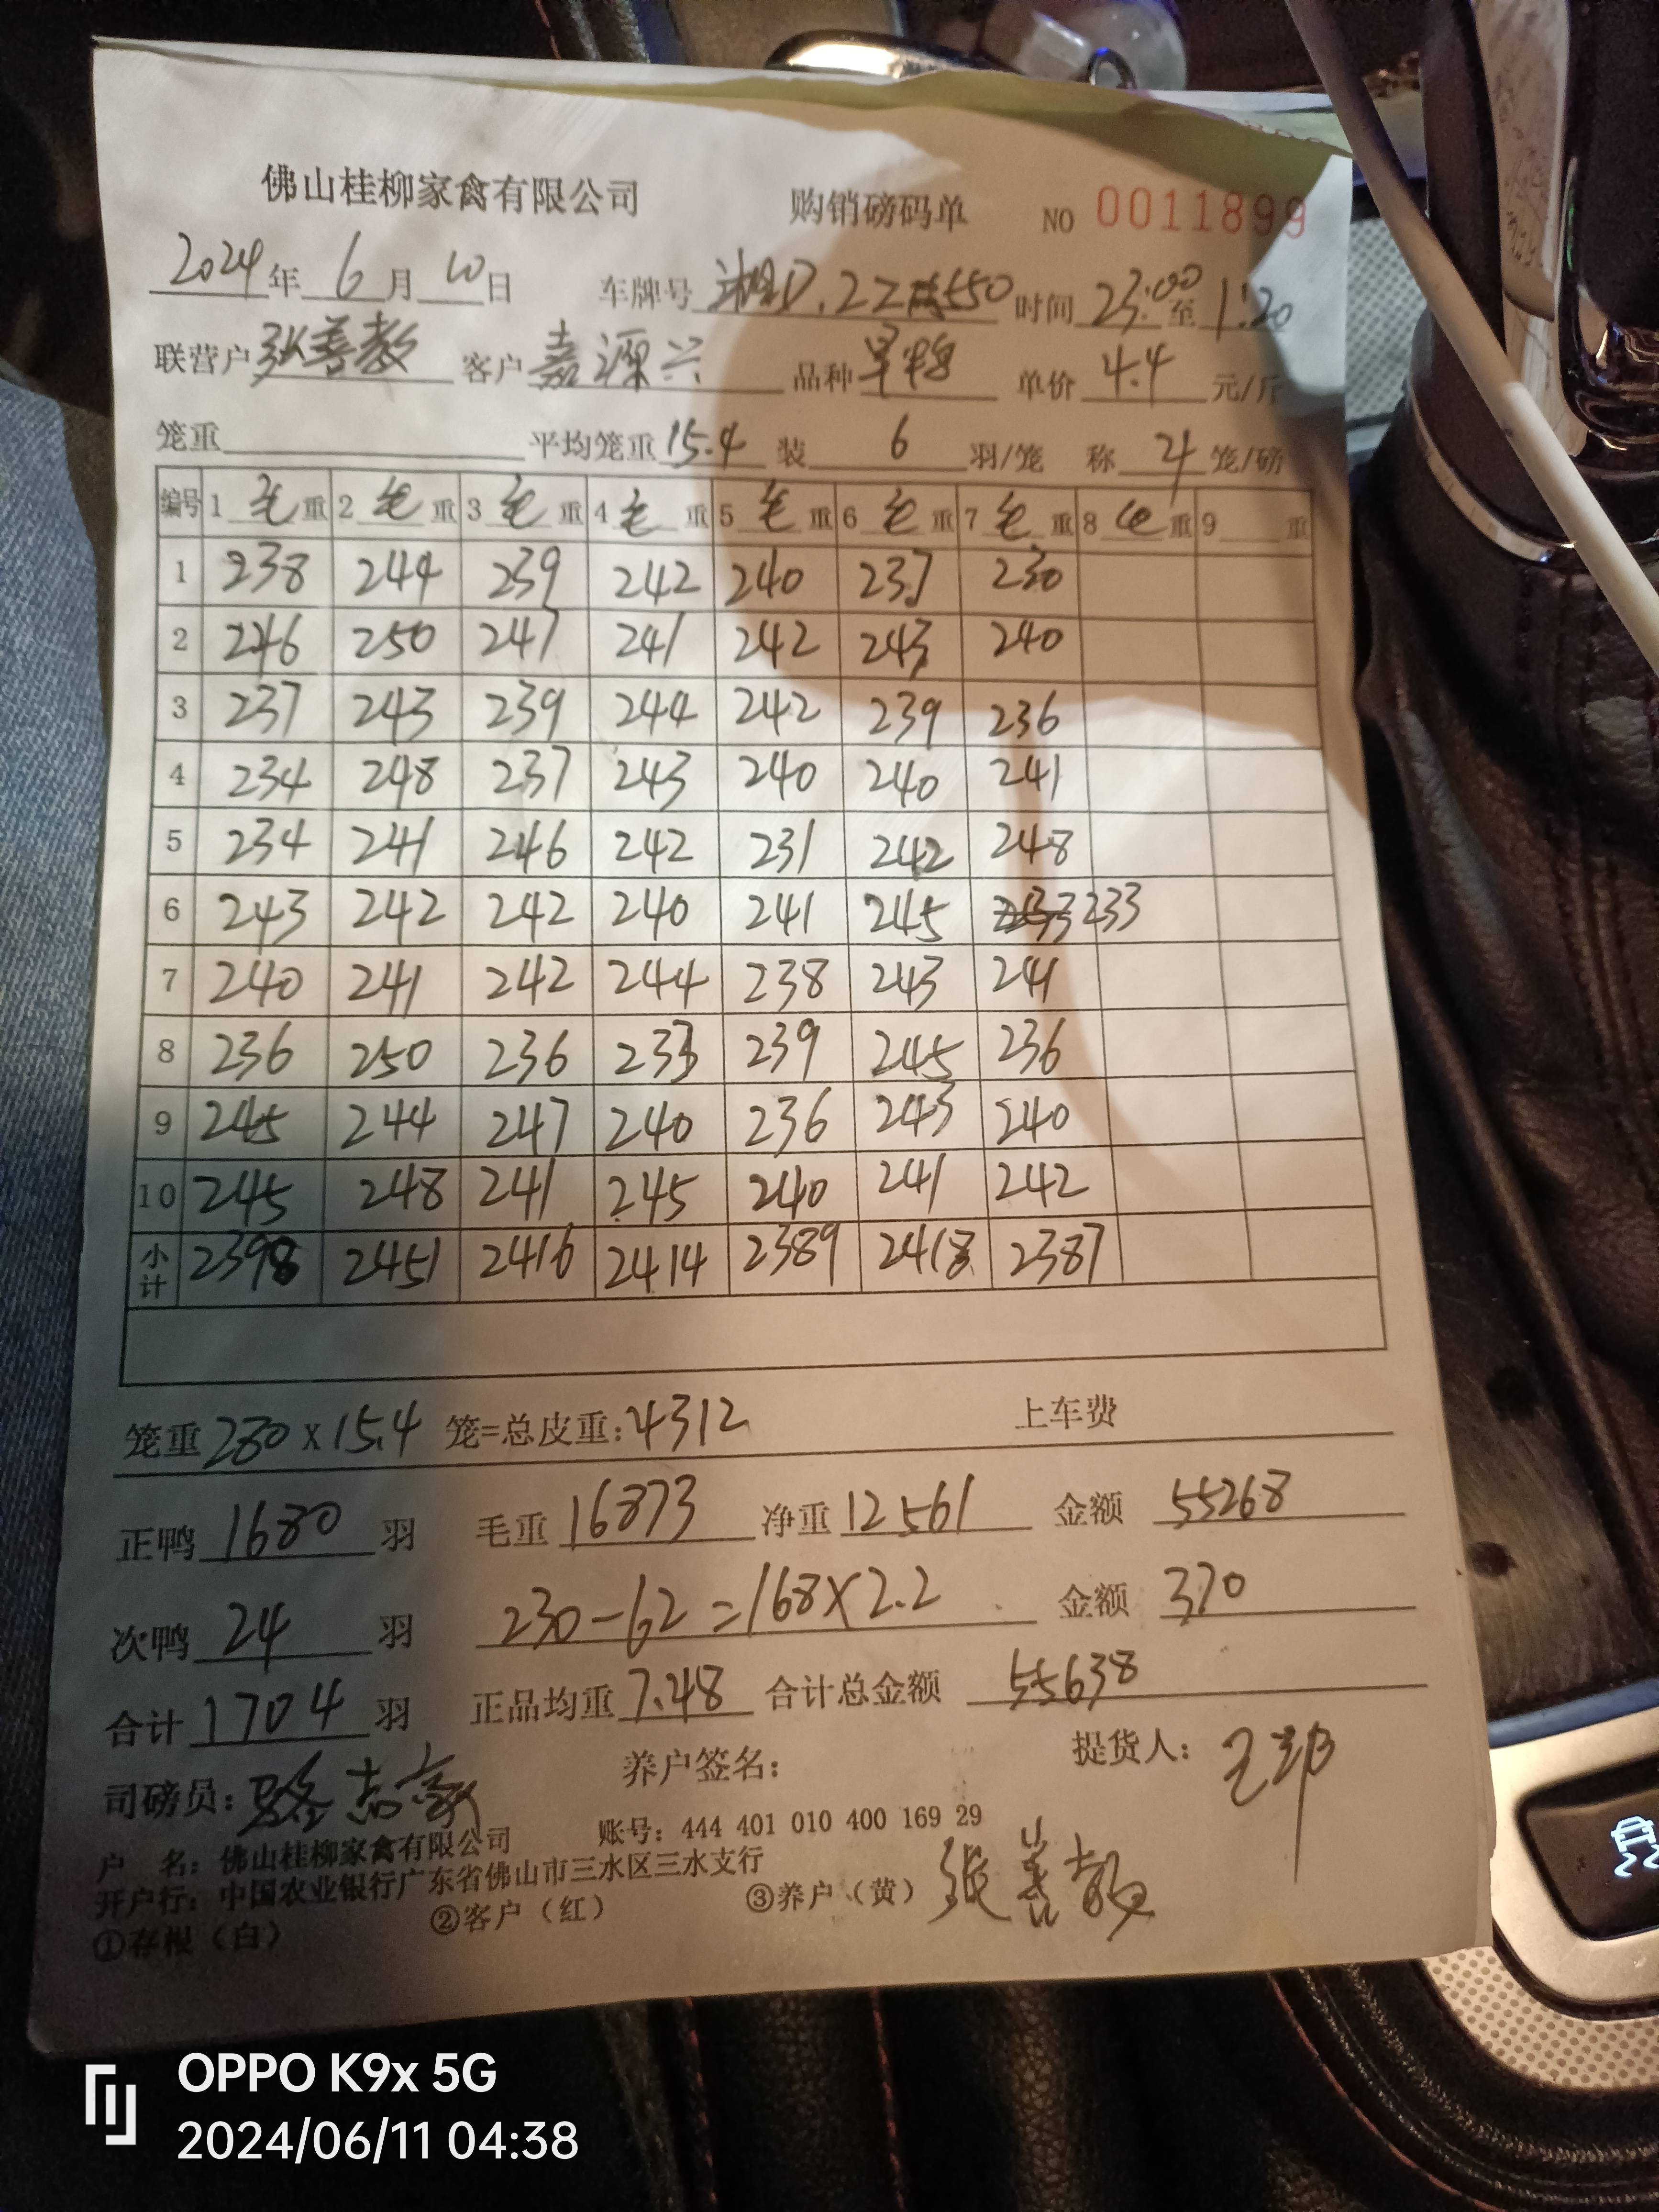 佛山桂柳家禽有限公司 购销磅码单 NO 0011899
2024年 6月 10日 车牌号 湘D.2Z 550 时间 23:00 至 1:20
联营户 张善教 客户 嘉源兴 品种 单价 4.4 元/斤
笼重 平均笼重 15.4 装 6 羽/笼 称 4 笼/磅
编号 1 毛 重 2 毛 重 3 毛 重 4 毛 重 5 毛 重 6 毛 重 7 毛 重 8 毛 重 9 重
1 238 244 239 242 240 237 230
2 246 250 247 241 242 243 240
3 237 243 239 244 242 239 236
4 234 248 237 243 240 240 241
5 234 241 246 242 231 242 248
6 243 242 242 240 241 245 233
7 240 241 242 244 238 243 241
8 236 250 236 233 239 245 236
9 245 244 247 240 236 243 240
10 245 248 241 245 240 241 242
小计 2398 2451 2416 2414 2389 2418 2387
笼重 280 x 15.4 笼=总皮重: 4312 上车费
正鸭 1680 羽 毛重 16873 净重 12561 金额 55268
次鸭 24 羽 230-62=168×2.2 金额 370
合计 1704 羽 正品均重 7.48 合计总金额 55638
司磅员: 骆志豪 养户签名: 提货人:
户 名: 佛山桂柳家禽有限公司 账号: 444 401 010 400 169 29
开户行: 中国农业银行广东省佛山市三水区三水支行
①存根（白） ②客户（红） ③养户（黄） 张善教
OPPO K9x 5G
2024/06/11 04:38